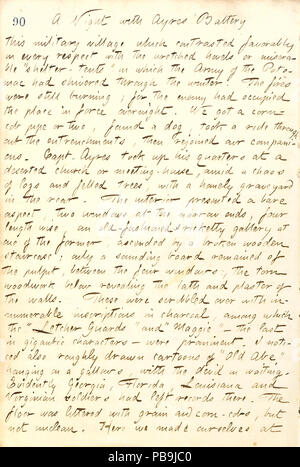 90 A Night with Ayres Battery
this military village which contrasted favorably
in every respect with the wretched hovels or misera-
ble "shelter-tents" in which the Army of the Poto-
mac had shivered through the winter. The fires
were still burning; for the enemy had occupied
the place in force overnight. We got a corn-
cob pipe or two, found a dog, took a ride through-
out the entrenchments, then rejoined our compani-
ons. Capt. Ayres took up his quarters at a
deserted church or meeting-house, amid a chaos
of logs and felled trees, with a homely graveyard
in the rear. The interior presented a bare
aspect, two windows at the narrow ends, four
length wise; an old-fashioned ricketty gallery at
one of the former, ascended by a broken wooden
staircase; only a sounding board remained of
the pulpit, between the four windows; the torn
woodwork below revealing the lath and plaster of
the walls. These were scribbled over with in-
numerable inscriptions in charcoal among which
the "Letcher Guards" and "Maggie" — the last
in gigantic characters — were prominent. I noti-
ced also roughly drawn cartoons of "Old Abe"
hanging on a gallows, with the devil in waiting.
Evidently Georgia, Florida Louisiana and
Virginian soldiers had left records there. The
floor was littered with grain and corn-cobs, but
not unclean. Here we made ourselves at
alamy
Image ID: PB9JC0
www.alamy.com